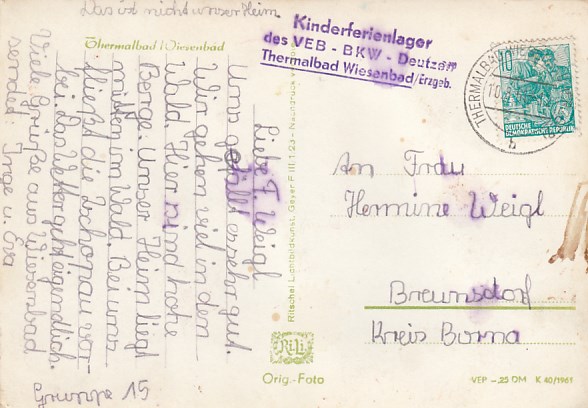 Das ist nicht unser Heim
Thermalbad Wiesenbad
Liebe F. Weigl
Uns gefällt es sehr gut.
Wir gehen viel in den
Wald. Hier sind hohe
Berge. Unser Heim liegt
mitten im Wald. Bei uns
fließt die Zschonau vor-
bei. Das Wetter geht eigendlich.
Viele Grüße aus Wiesenbad
sendet: Inge u. Eva
Gruppe 15
Kinderferienlager
des VEB - BKW - Deutzen
Thermalbad Wiesenbad/Erzgeb.
THERMALBAD
10
DEUTSCHE
DEMOKRATISCHE REPUBLIK
b
An Frau
Hermine Weigl
Breunsdorf
Kreis Borna
Ritschel Lichtbildkunst, Geyer
RiLi
Orig.-Foto
VEP -,25 DM K 40/1961